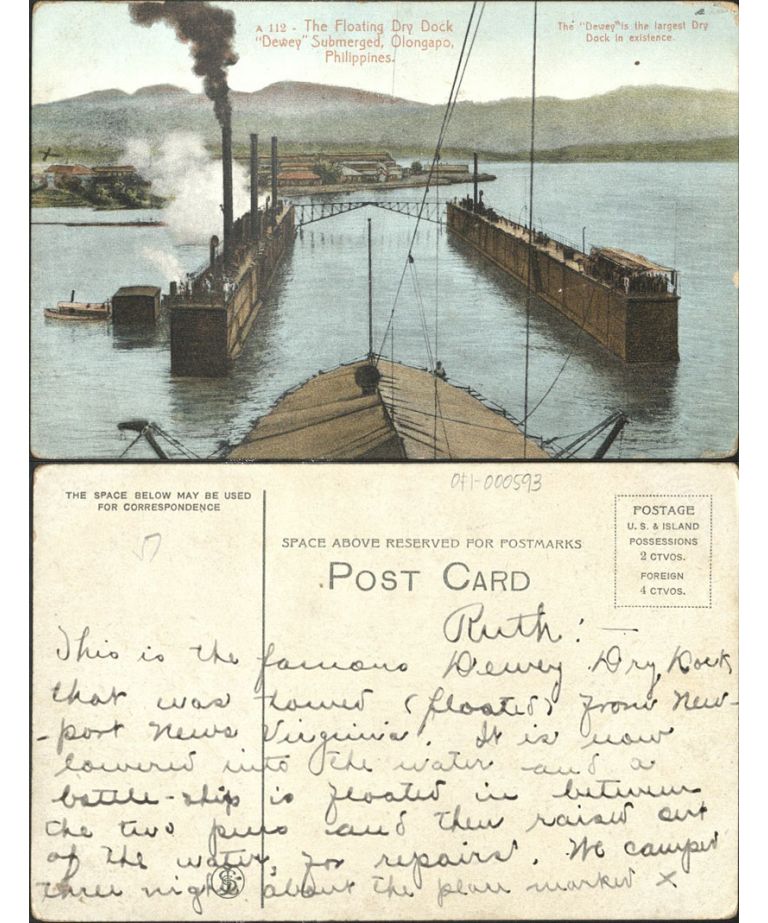 A 112 - The Floating Dry Dock
"Dewey" Submerged, Olongapo,
Philippines.
The "Dewey" is the largest Dry
Dock in existence.
x
THE SPACE BELOW MAY BE USED
FOR CORRESPONDENCE
071-000593
SPACE ABOVE RESERVED FOR POSTMARKS
POST CARD
POSTAGE
U. S. & ISLAND
POSSESSIONS
2 CTVOS.
FOREIGN
4 CTVOS.
Ruth: —
This is the famous Dewey Dry Dock
that was towed (floated) from New-
-port News Virginia. It is now
lowered into the water and a
battle-ship is floated in between
the two piers and then raised out
of the water, for repairs. We camped
three nights about the place marked x